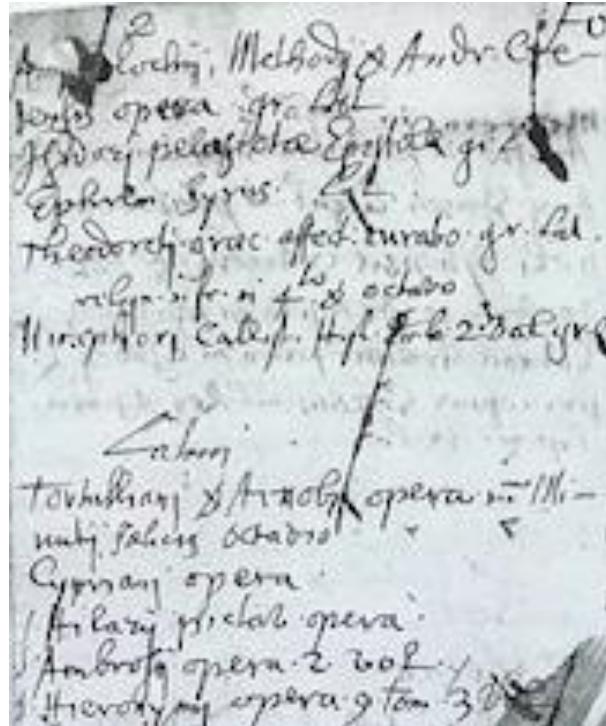 Methodij & Andr. Cre-
tensis opera gr. Lat
Isidorj pelusiotae Epistolae gr. L
Ephrem Syrus. Lat
Theodoretj graec affect. curatio gr. Lat.
4to & octavo
Nicephorj Callist. Hist. 2 Lat gr
Latinj
Tertullianj & Arnobij opera Mi-
nutij foelicis octavio
Cyprianj opera
Hilarij pictav opera
Ambrosij opera 2 vol.
Hieronymj opera 9 tom 3 vol